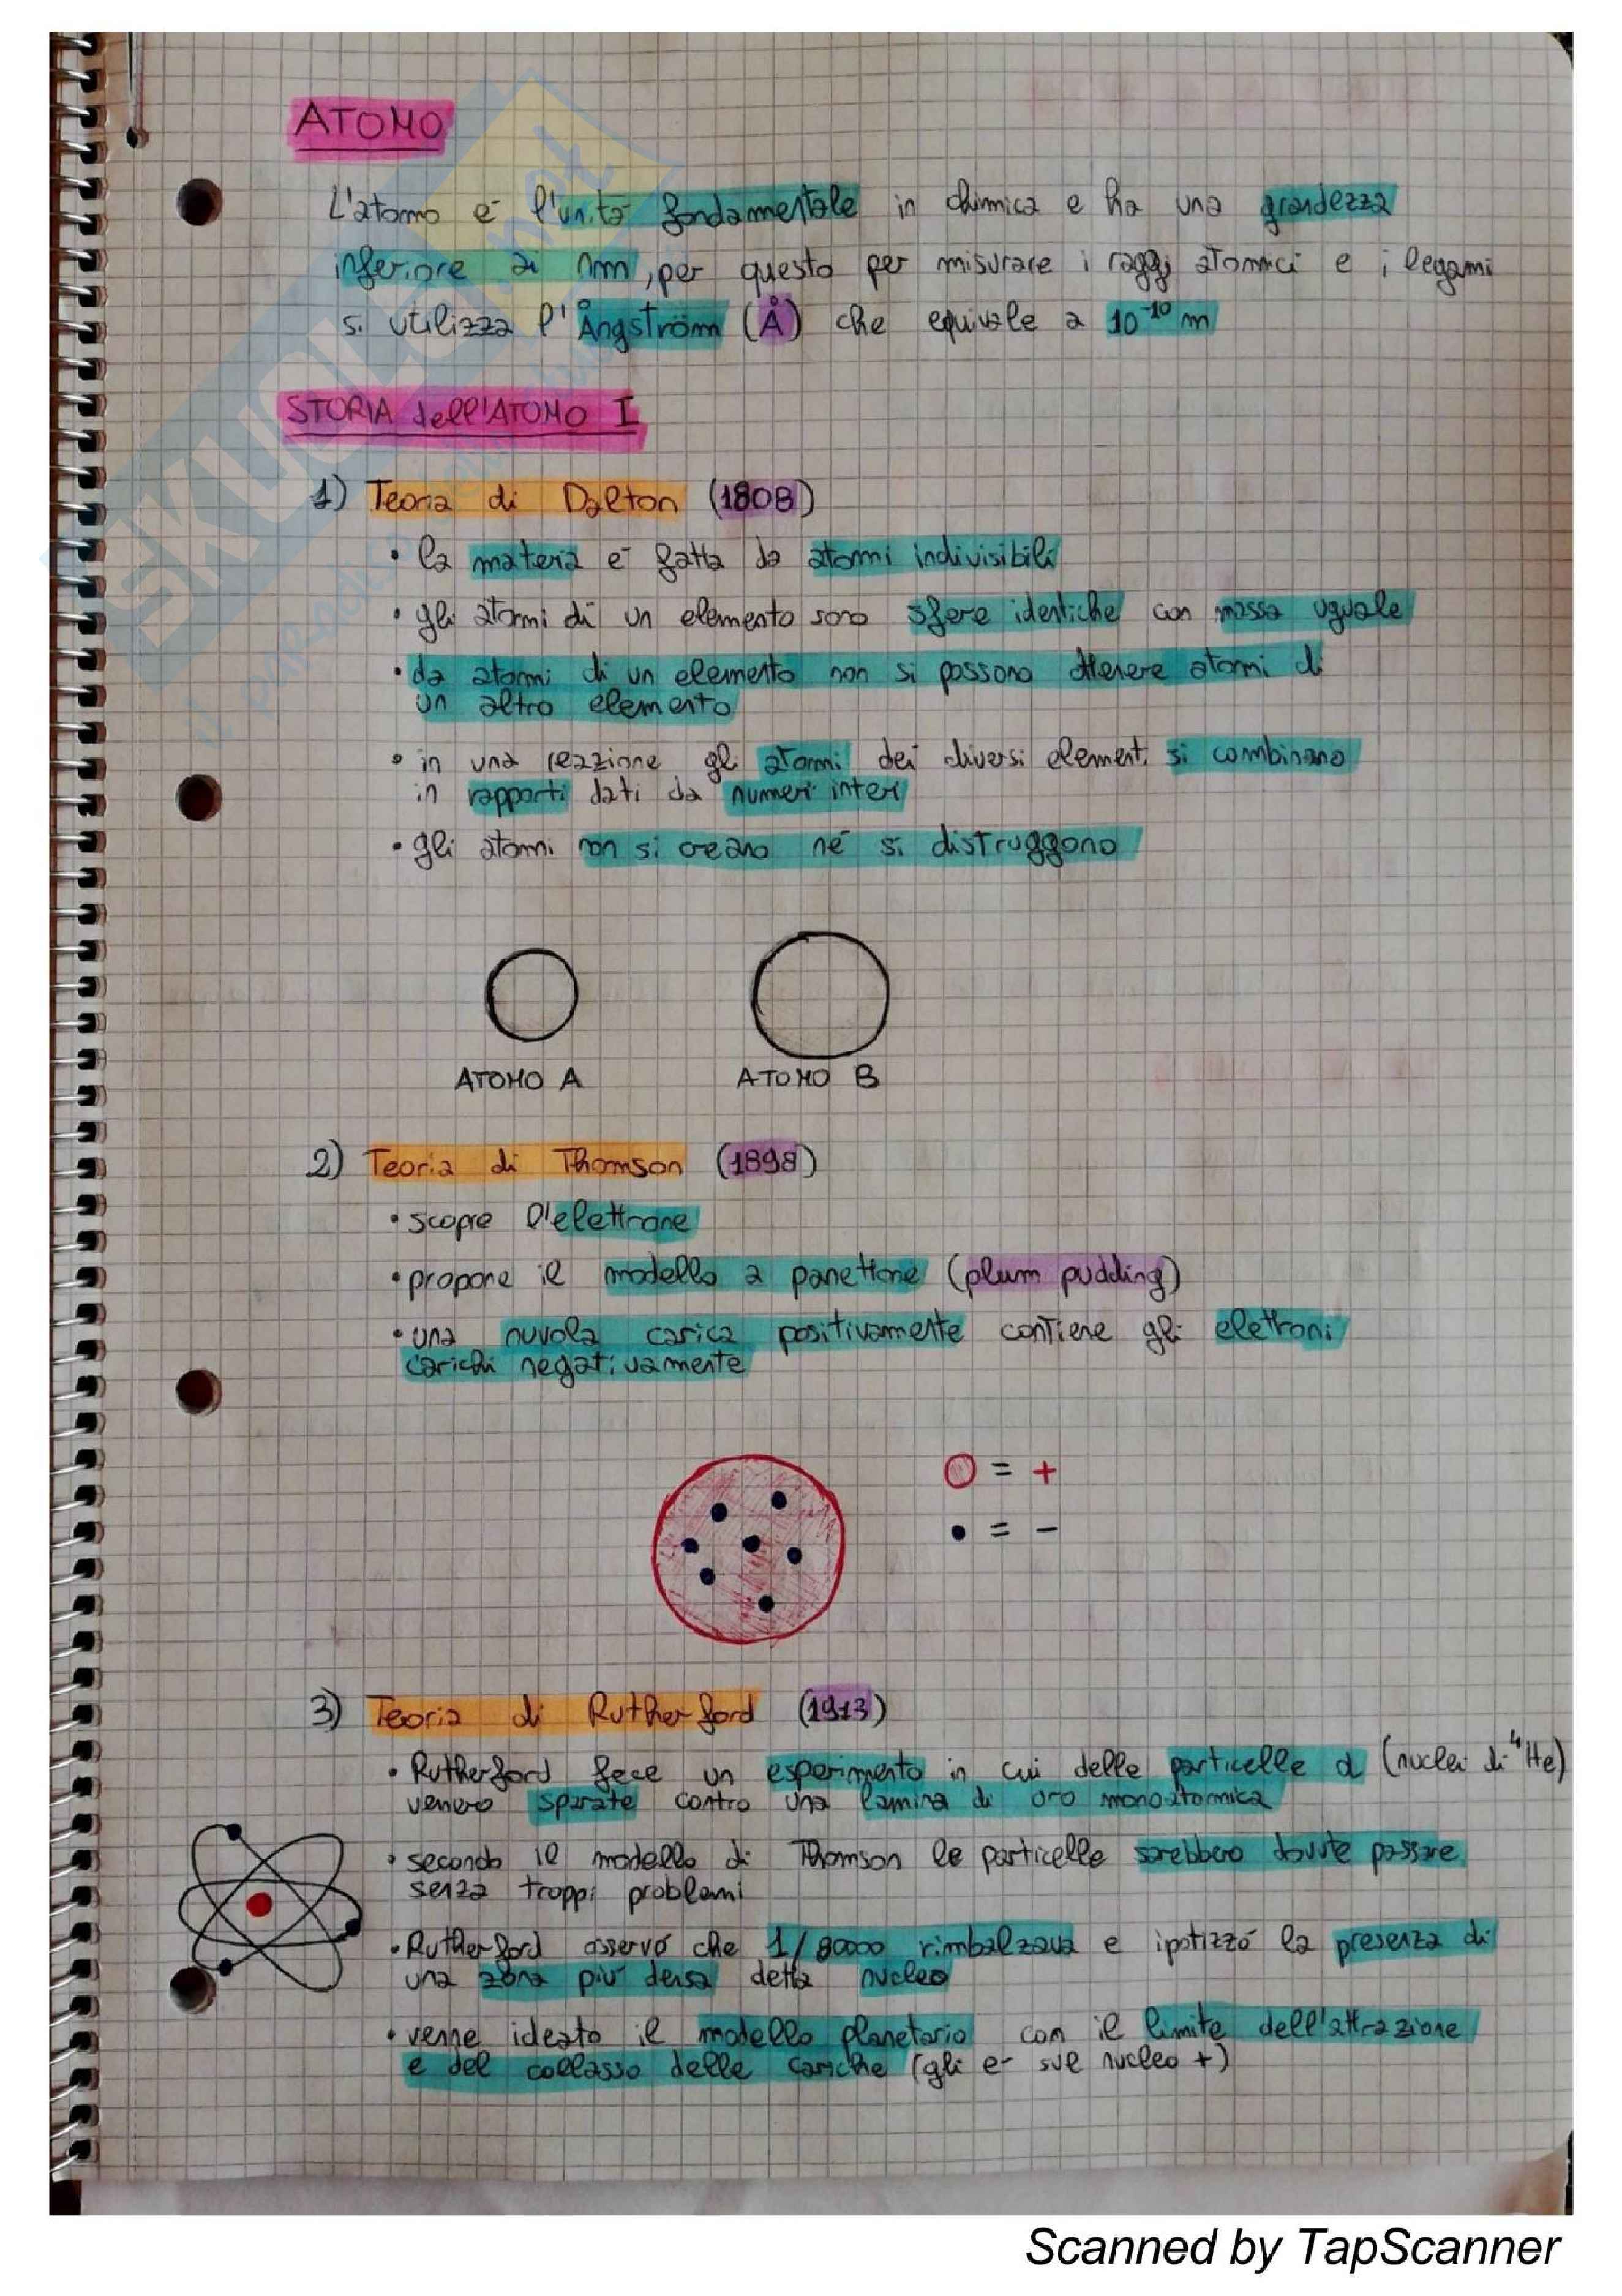 ATOMO
L'atomo è l'unità fondamentale in chimica e ha una grandezza
inferiore ai nm, per questo per misurare i raggi atomici e i legami
si utilizza l'Ångström (Å) che equivale a 10⁻¹⁰ m
STORIA dell'ATOMO I
1) Teoria di Dalton (1808)
• la materia è fatta da atomi indivisibili
• gli atomi di un elemento sono sfere identiche con massa uguale
• da atomi di un elemento non si possono ottenere atomi di
un altro elemento
• in una reazione gli atomi dei diversi elementi si combinano
in rapporti dati da numeri interi
• gli atomi non si creano né si distruggono
ATOMO A ATOMO B
2) Teoria di Thomson (1898)
• scopre l'elettrone
• propone il modello a panettone (plum pudding)
• una nuvola carica positivamente contiene gli elettroni
carichi negativamente
= +
= -
3) Teoria di Rutherford (1913)
• Rutherford fece un esperimento in cui delle particelle α (nuclei di ⁴He)
venero sparate contro una lamina di oro monoatomica
• secondo il modello di Thomson le particelle sarebbero dovute passare
senza troppi problemi
• Rutherford osservò che 1/80000 rimbalzava e ipotizzò la presenza di
una zona più densa detta nucleo
• venne ideato il modello planetario con il limite dell'attrazione
e del collasso delle cariche (gli e- sul nucleo +)
SKUOLA.net
Scanned by TapScanner